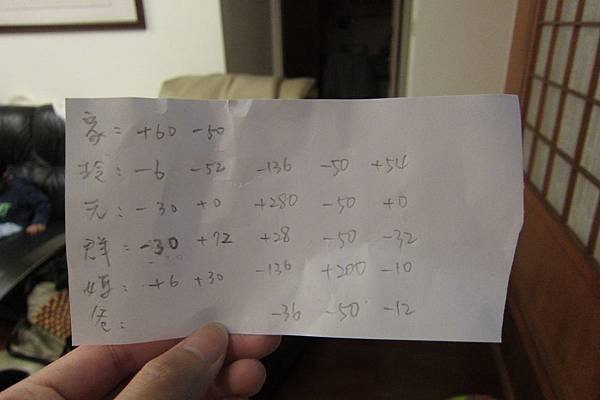 家: +60 -50
玲: -6 -52 -136 -50 +54
元: -30 +0 +280 -50 +0
群: -30 +72 +28 -50 -32
媽: +6 +30 -136 +200 -10
爸: -36 -50 -12